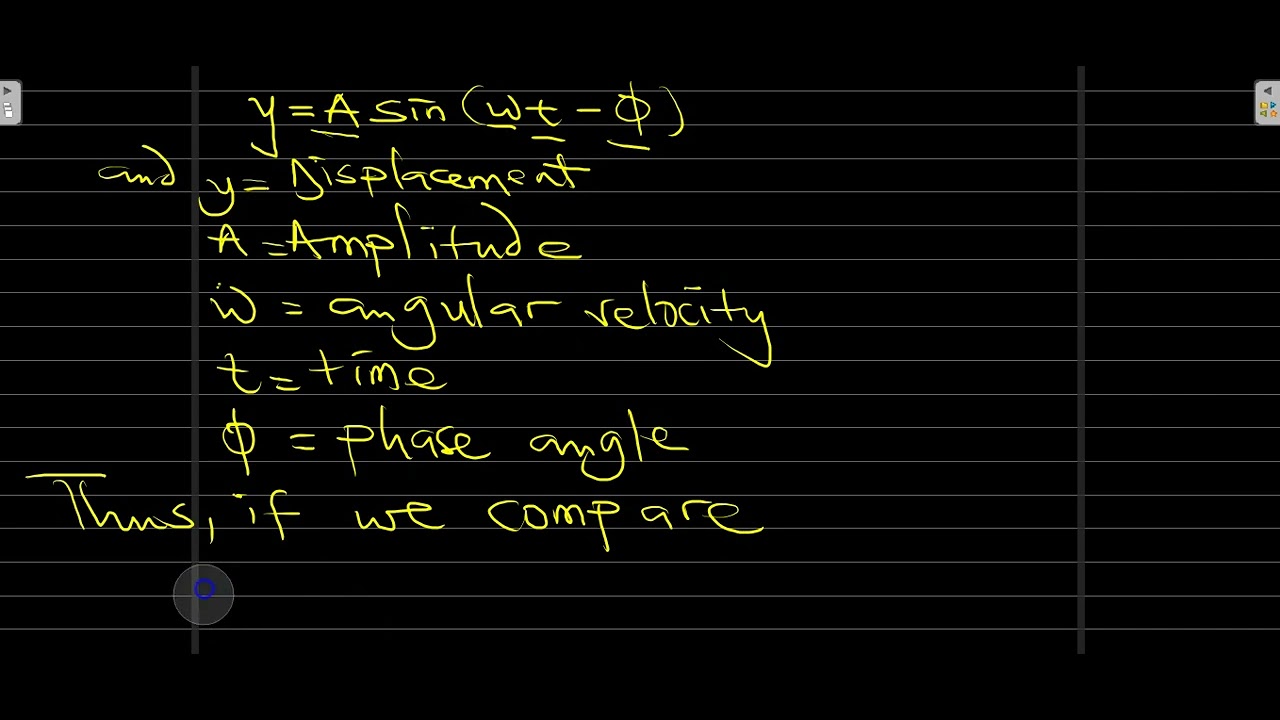 y = A sin (wt - ϕ)
and y = Displacement
A = Amplitude
w = angular velocity
t = time
ϕ = phase angle
Thus, if we compare